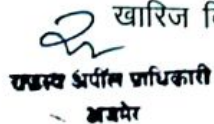 खारिज
राजस्व अपील प्राधिकारी
अजमेर